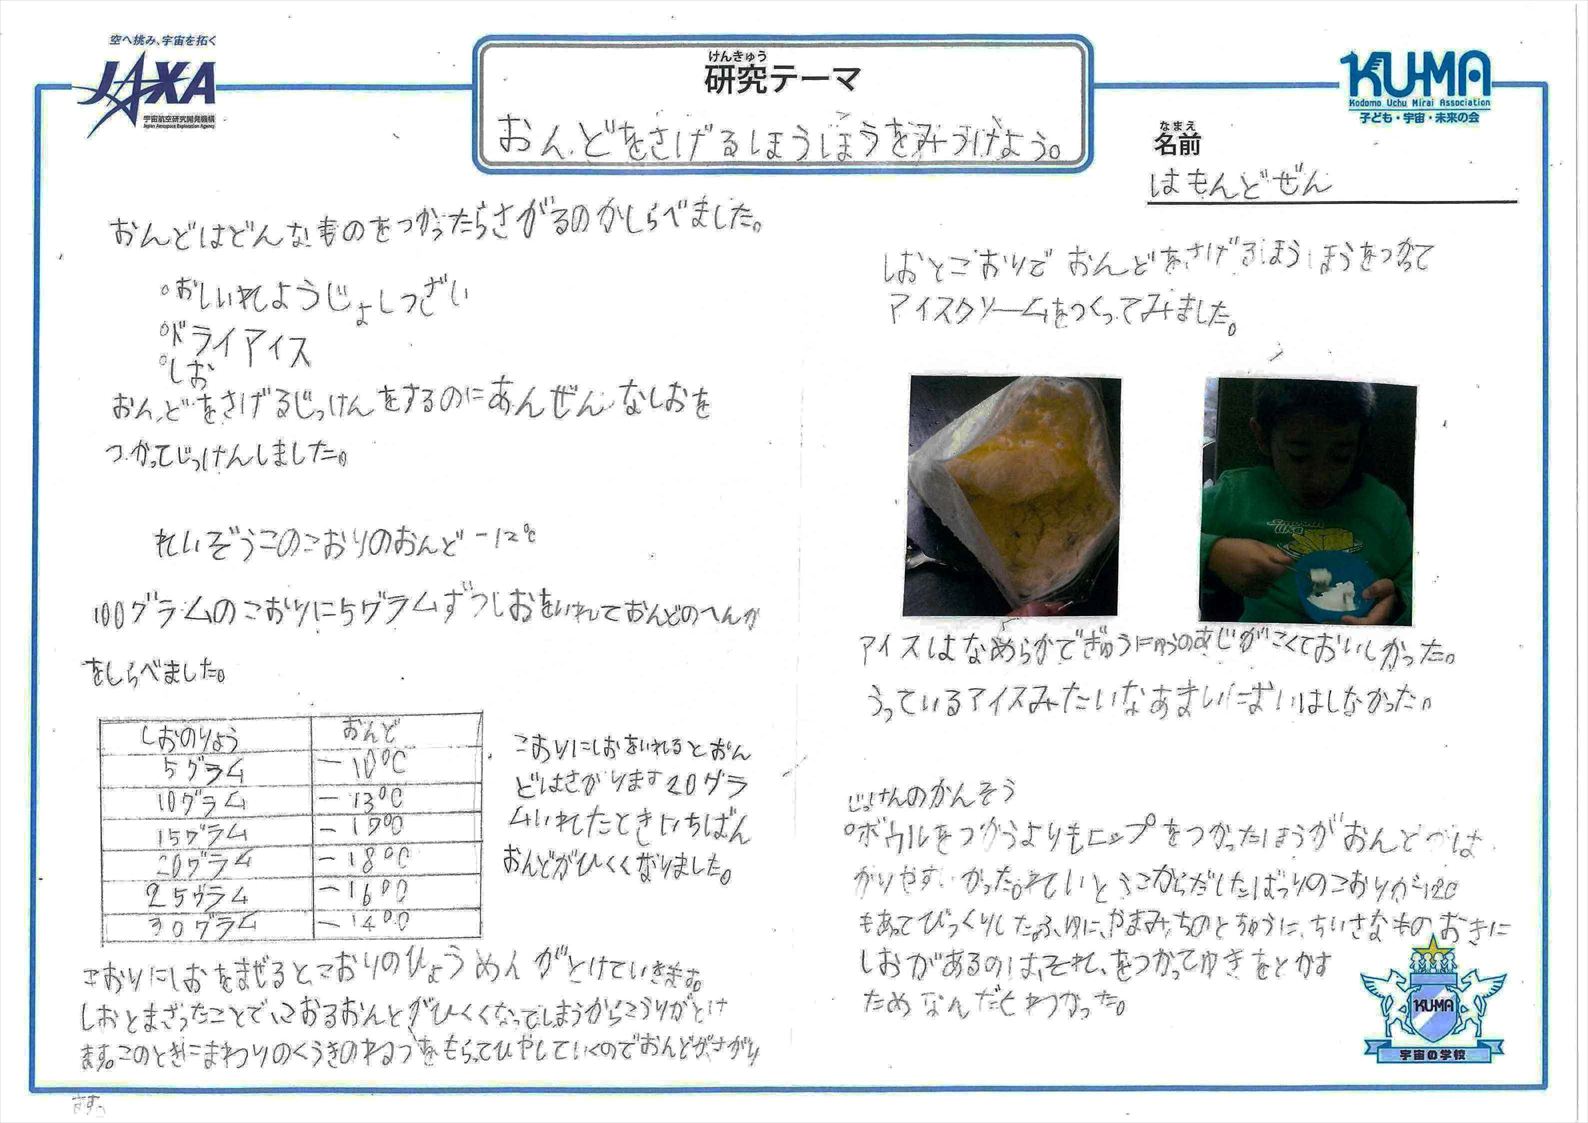 空へ挑み、宇宙を拓く
JAXA
宇宙航空研究開発機構
Japan Aerospace Exploration Agency
けんきゅう
研究テーマ
おんどをさげるほうほうをみつけよう。
KU-MA
Kodomo Uchu Mirai Association
子ども・宇宙・未来の会
なまえ
名前
はもんどぜん
おんどはどんなものをつかったらさがるのかしらべました。
°おしいれようじょしつざい
°ドライアイス
°しお
おんどをさげるじっけんをするのにあんぜんなしおを
つかってじっけんしました。
れいぞうこのこおりのおんど -12℃
100グラムのこおりに5グラムずつしおをいれておんどのへんか
をしらべました。
しおのりょう おんど
5グラム -10℃
10グラム -13℃
15グラム
20グラム -18℃
25グラム -16℃
30グラム -14℃
こおりにしおをいれるとおん
どはさがります20グラ
ムいれたときいちばん
おんどがひくくなりました。
こおりにしおをまぜると、こおりのひょうめんがとけていきます。
しおとまざったことで、こおるおんどがひくくなってしまうからこうりがとけ
ます。このときにまわりのくうきのねつをもらってひやしていくのでおんどがさがり
ます。
しおとこおりでおんどをさげるほうほうをつかって
アイスクリームをつくってみました。
アイスはなめらかでぎゅうにゅうのあじがこくておいしかった。
うっているアイスみたいなあまいにおいはしなかった。
じっけんのかんそう
°ボウルをつかうよりもヒップをつかったほうがおんど は
かりやすいかった。れいとうこからだしたばっりのこおりが-12℃
もあってびっくりした。ふゆに、やまみちのとちゅうに、ちいさなものおきに
しおがあるのは、それ、をつかってゆきをとかす
ためなんだとわかった。
KU-MA
宇宙の学校